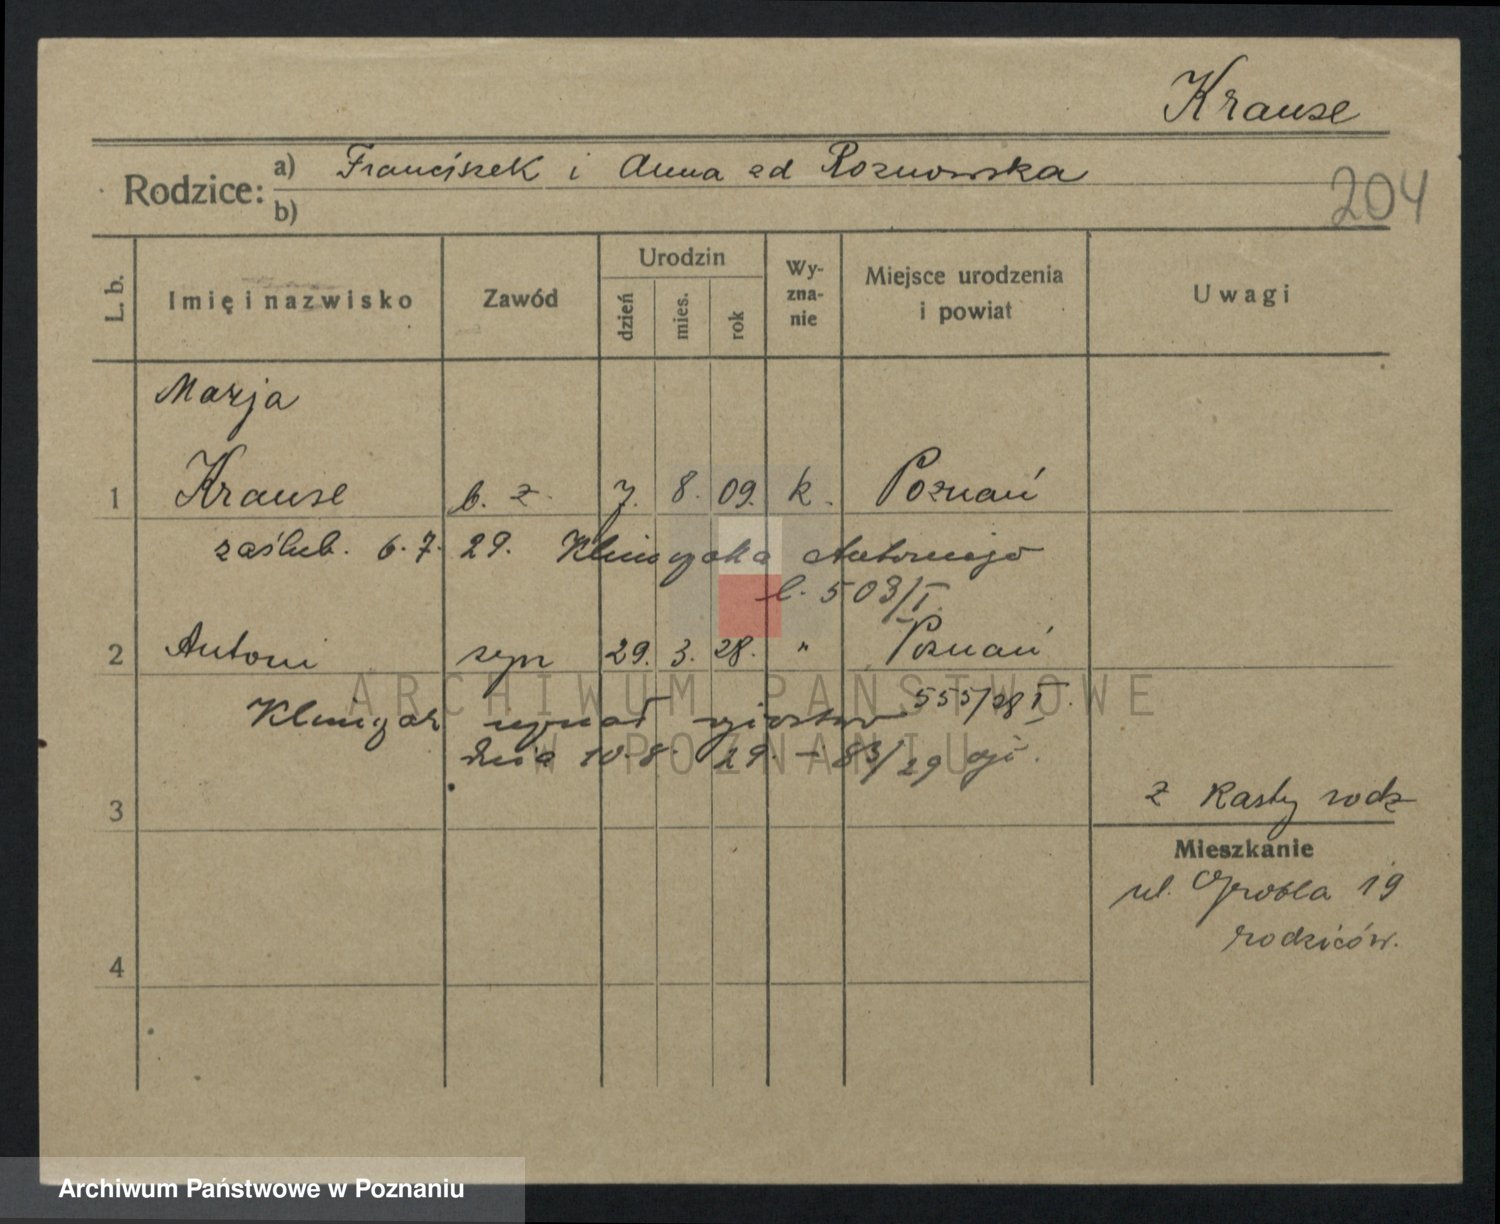 Krause
204
Rodzice: a) Franciszek i Anna zd Roznowska
b)
L. b. Imię i nazwisko Zawód Urodzin dzień mies. rok Wyznanie Miejsce urodzenia i powiat Uwagi
Marja
1 Krause b. z. 7. 8. 09. k. Poznań
zaślub. 6. 7. 29. Klimczaka Antoniego
l. 503/I.
2 Antoni syn 29. 3. 28. " Poznań
555/28 I.
Klimczak uznał ojcostwo
dnia 10. 8. 29. – 83/29
3
z Karty rodz
Mieszkanie
ul. Grobla 19
rodziców.
4
ARCHIWUM PAŃSTWOWE
W POZNANIU
Archiwum Państwowe w Poznaniu